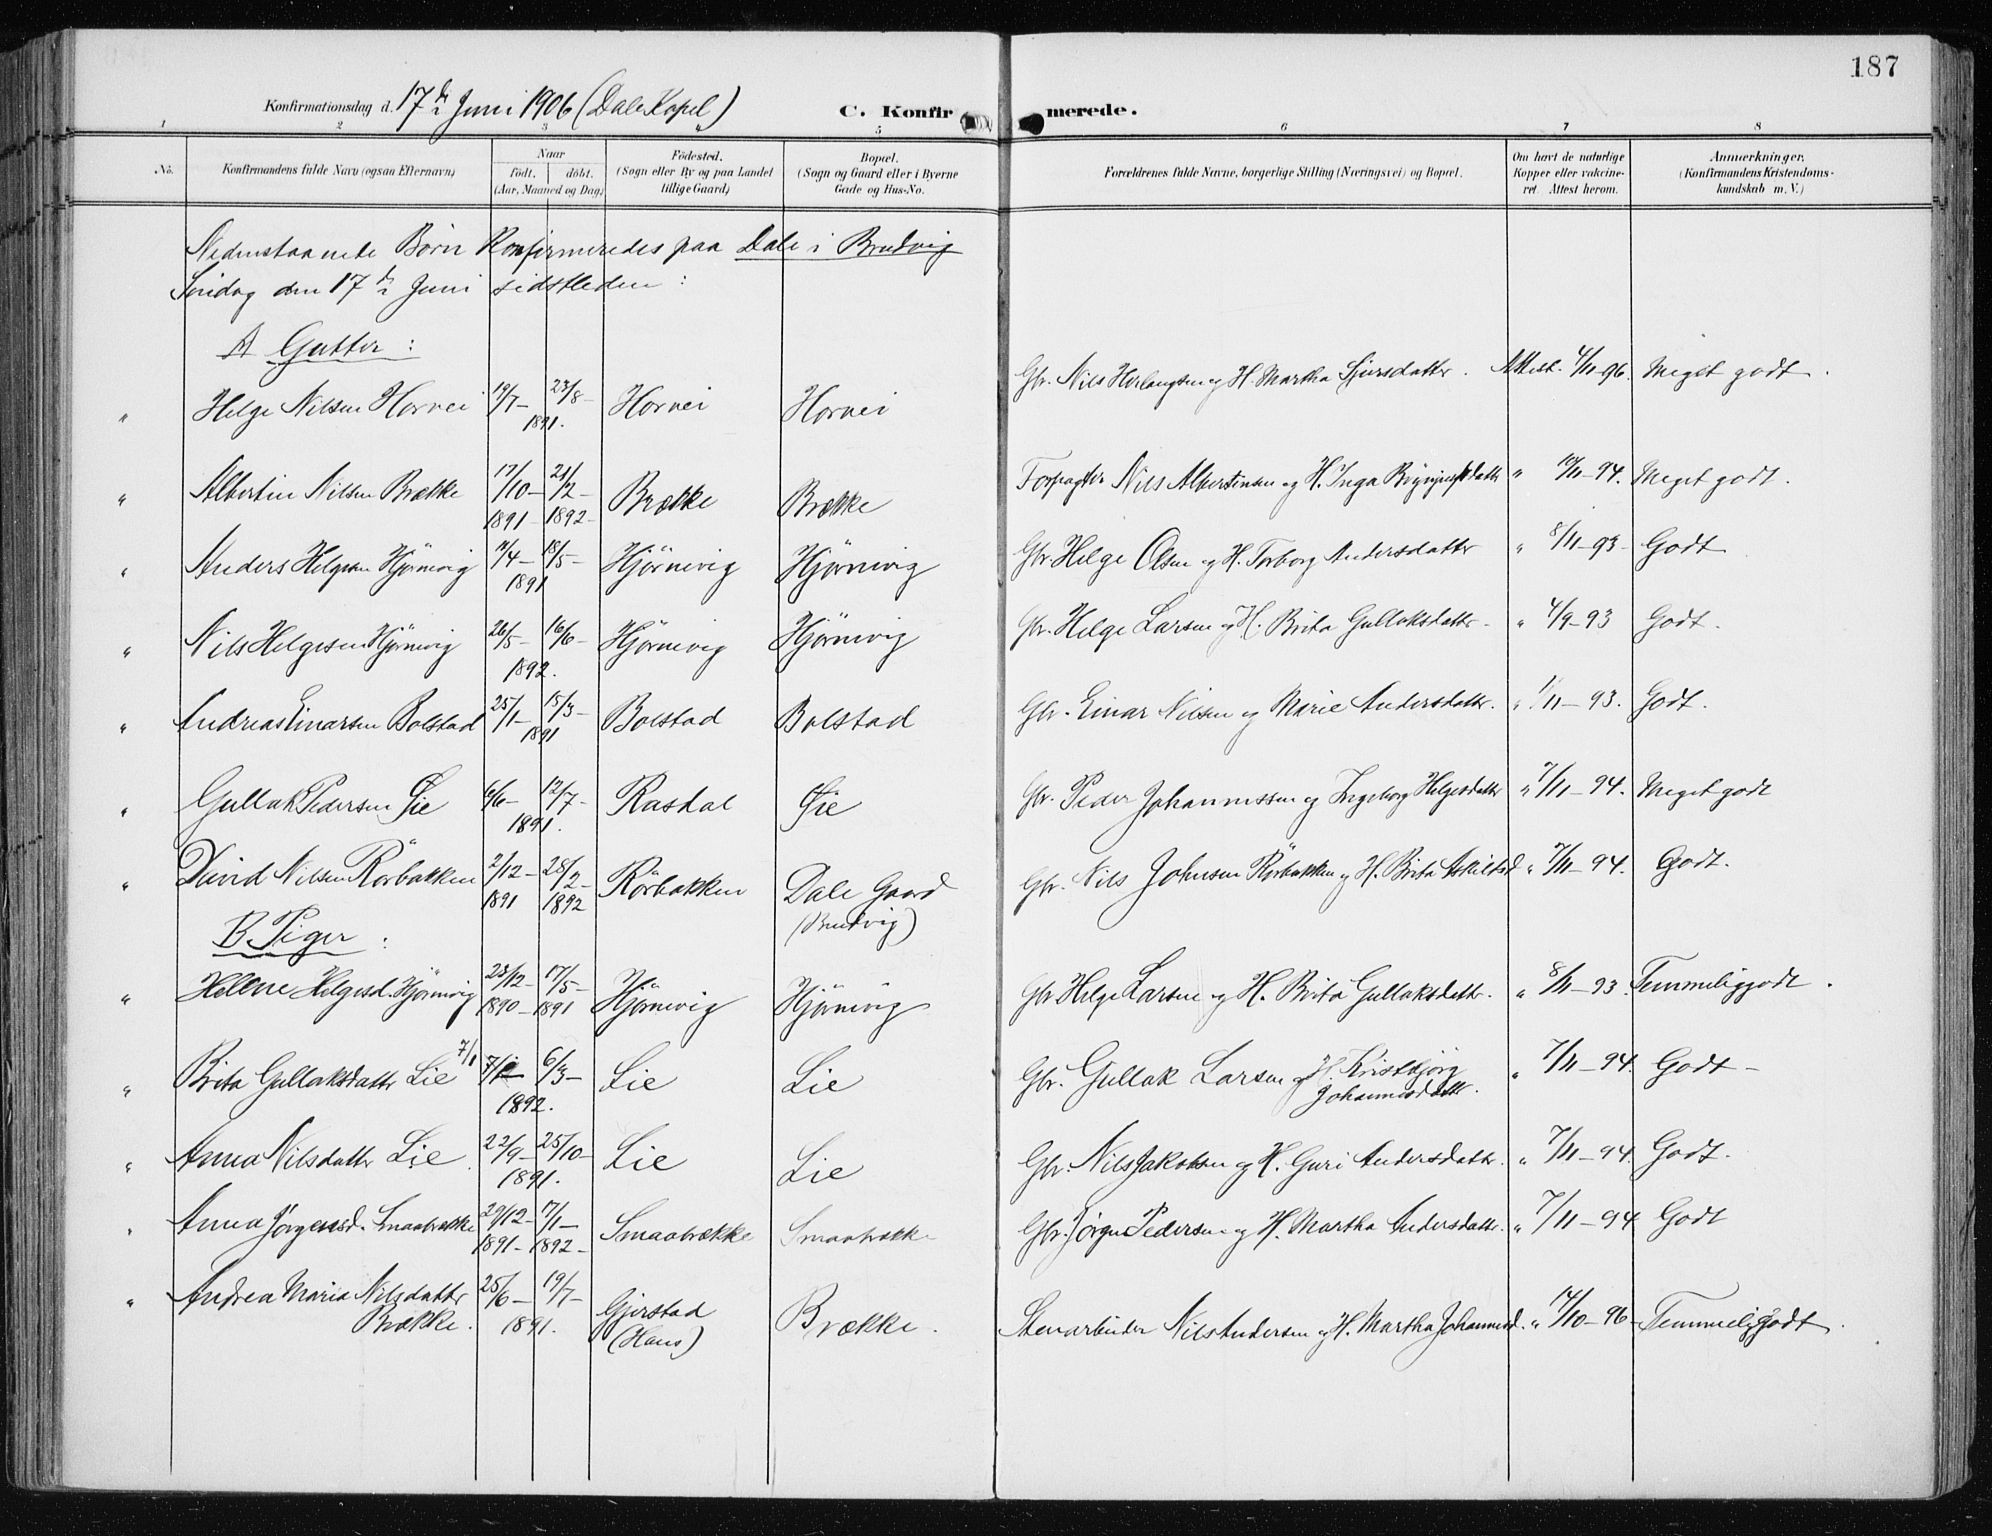 187
Konfirmationsdag d. 17de Juni 1906 (Dale Kapel)
C. Konfirmerede.
1 2 3 5 6 7 8
No. Konfirmandens fulde Navn (ogsaa Efternavn) Naar født. døbt. (Aar, Maaned og Dag) Fødested. (Sogn eller By og paa Landet tillige Gaard) Bopæl. (Sogn og Gaard eller i Byerne Gade og Hus-No. Forældrenes fulde Navne, borgerlige Stilling (Næringsvei) og Bopæl. Om havt de naturlige Kopper eller vaccineret. Attest herom. Anmærkninger. (Konfirmandens Kristendomskundskab m. V.)
Nedenstaaende Børn konfirmeredes paa Dale i Bruvig
Søndag den 17de Juni sidstleden :
A Gutter :
" Helge Nilsen Horvei 19/7- 23/8- 1891. Horvei Horvei Gbr. Nils Herlaugsen og H. Martha Sjursdatter. Attest. 4/11-96. Meget godt.
" Albertin Nilsen Brække 17/10- 1891- 21/2- 1892- Brække Brække Forpagter Nils Albertinsen og H. Inga datter " 12/11-94. Meget godt.
" Anders Helgesen Hjørnevig 11/4- 18/5- 1891 Hjørnevig Hjørnevig Gbr. Helge Olsen og H. Torborg Andersdatter " 8/11-93- Godt
" Nils Helgesen Hjørnevig 26/5- 16/6- 1892. Hjørnevig Hjørnevig Gbr. Helge Larsen og H. Brita Gullaksdatter- " 4/9-93 Godt.
" Andreas Einarsen Bolstad 25/1- 15/3- 1891 Bolstad Bolstad Gbr. Einar Nilsen og Marie Andersdatter. " 1/11-93. Godt.
" Gullak Pedersen Øie 6/6- 12/7- 1891. Rasdal Øie Gbr. Peder Johannessen og Ingeborg Helgesdatter " 7/11-94. Meget godt
" David Nilsen Rørbakken 2/12- 1891 28/2- 1892 Rørbakken Dale Gaard (Bruvig) Gbr. Nils Johnsen Rørbakken og H. Brita Askilsd " 7/11-94. Godt.
B. Piger :
" Helene Helgesd. Hjørnevig 23/12- 1890- 17/5- 1891 Hjørnevig Hjørnevig Gbr. Helge Larsen og H. Brita Gullaksdatter. " 8/11-93. Temmelig godt.
" Brita Gullaksdatter Lie 7/1 6/3- 1892. Lie Lie Gbr. Gullak Larsen og H. Kristbjørg Johannesdatter. " 7/11-94. Godt-
" Anna Nilsdatter Lie 22/9- 25/10- 1891. Lie Lie Gbr. Nils Jakobsen og H. Guri Andersdatter. " 7/11-94. Godt.
" Anna Jørgensd. Smaabrække 29/12- 1891- 17/1- 1892- Smaabrække Smaabrække Gbr. Jørgen Pedersen og H. Martha Andersdatter. " 7/11-94 Godt
" Andrea Maria Nilsdatter Brække. 25/6- 19/7- 1891. Gjerstad (Haus) Brække. Stenarbeider Nils Andersen og H. Martha Johannesd. " 14/10-96- Temmelig godt.